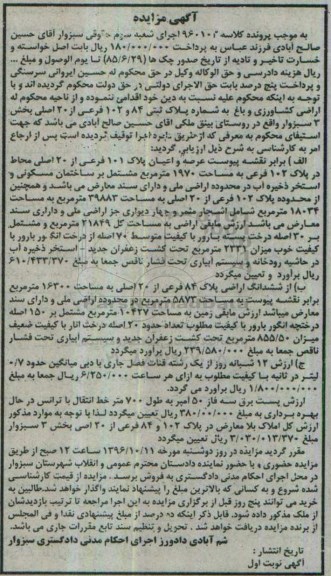 آگهی مزایده
به موجب پرونده کلاسه 960103 اجرای شعبه سوم حقوقی سبزوار آقای حسین
صالح آبادی فرزند عباس به پرداخت 180/000/000 ریال بابت اصل خواسته و
خسارت تاخیر و تادیه از تاریخ صدور چک ها (85/6/29) تا یوم الوصول و مبلغ ...
ریال هزینه دادرسی و حق الوکاله وکیل در حق محکوم له حسین ایروانی سرسنگی
و پرداخت پنج درصد بابت حق الاجرای دولتی در حق دولت محکوم گردیده اند و با
توجه به اینکه محکوم علیه نسبت به دین خود اقدامی ننموده و از ناحیه محکوم له
اراضی کشاورزی و باغ به شماره پلاک ثبتی 84 و 102 فرعی از 20 اصلی بخش
3 سبزوار واقع در روستای بیتق ملکی آقای حسین صالح آبادی می باشد که جهت
استیفای محکوم به معرفی که از طریق دایره اجرا توقیف گردیده است پس از ارجاع
امر به کارشناسی به شرح ذیل ارزیابی گردید:
الف) برابر نقشه پیوست عرصه و اعیان پلاک 101 فرعی از 20 اصلی محاط
در پلاک 102 فرعی به مساحت 1970 مترمربع مشتمل بر ساختمان مسکونی و
استخر ذخیره آب در محدوده اراضی ملی و دارای سند معارض می باشد و همچنین
از محدوده پلاک 102 فرعی از 20 اصلی به مساحت 39883 مترمربع به مساحت
18034 مترمربع شامل اشجار مثمر و چهار دیواری جز اراضی ملی و دارای سند
معارض می باشد ارزش مابقی اراضی به مساحت کل 21849 مترمربع و مشتمل
بر 300 اصله درخت پسته بارور با کیفیت متوسط 70 اصله از درخت انگور بارور با
کیفیت خوب میزان 2231 مترمربع تحت کشت زعفران جدید، استخر ذخیره آب
در حاشیه رودخانه و سیستم آبیاری تحت فشار ناقص جمعا به مبلغ 610/433/370
ریال برآورد و تعیین میگردد
ب) از ششدانگ اراضی پلاک 84 فرعی از 20 اصلی به مساحت 16300 مترمربع
برابر نقشه پیوست به مساحت 5873 مترمربع در محدوده اراضی ملی و دارای سند
معارض میباشد ارزش مابقی زمین به مساحت 10427 مترمربع مشتمل بر 150 اصله
درختچه انگور بارور با کیفیت مطلوب تعداد حدود 20 اصله درخت انار با کیفیت ضعیف
میزان 855/50 مترمربع تحت کشت زعفران جدید و سیستم آبیاری تحت فشار
ناقص جمعا به مبلغ 239/580/000 ریال برآورد میگردد
ج) ارزش 12 شبانه روز از یک رشته قنات فصل جاری با دبی میانگین حدود 0/7
لیتر در ثانیه با کیفیت مطلوب به ازای هر ساعت 6/250/000 ریال جمعا به مبلغ
1/800/000/000 ریال برآورد می گردد.
ارزش پست برق سه فاز 50 آمپر به طول 700 متر خط انتقال با ترانس در حال
بهره برداری به مبلغ 380/000/000 ریال تعیین میگردد لذا با توجه به موارد مذکور
ارزش کل املاک بلا معارض در پلاک 102 و 84 فرعی از 20 اصلی بخش 3 سبزوار
مبلغ 3/030/013/370 ریال تعیین میگردد
مقرر گردید مزایده در روز دوشنبه مورخه 1396/10/11 ساعت 12 صبح از طریق
مزایده حضوری و با حضور نماینده دادستان محترم عمومی و انقلاب شهرستان سبزوار
در محل اجرای احکام مدنی دادگستری به فروش برسد. مزایده از قیمت کارشناسی
شده شروع و به کسانی که بالاترین مبلغ را پیشنهاد نمایند واگذار خواهد شد طالبین به
خرید می توانند پنج روز قبل از برگزاری مزایده به این اجرا مراجعه تا ترتیب بازدیدشان
از ملک مذکور داده شود قابل ذکر اینکه ده درصد از مبلغ پیشنهادی نقدا و فی المجلس
از برنده مزایده دریافت خواهد شد. تحویل و تنظیم سند تابع مقررات جاری می باشد.
شم آبادی دادورز اجرای احکام مدنی دادگستری سبزوار
تاریخ انتشار:
آگهی نوبت اول